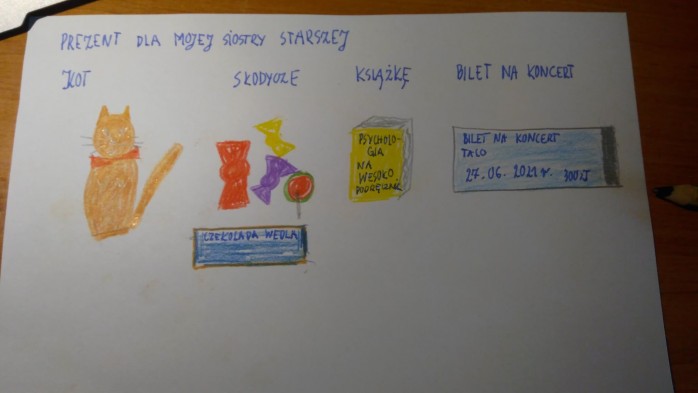 PREZENT DLA MOJEJ SIOSTRY STARSZEJ
KOT
SŁODYCZE
KSIĄŻKĘ
BILET NA KONCERT
PSYCHOLO-
GIA
NA
WESOŁO
PODRĘCZNIK
BILET NA KONCERT
TALO
27.06.2021 r. 300 zł
CZEKOLADA WEDLA